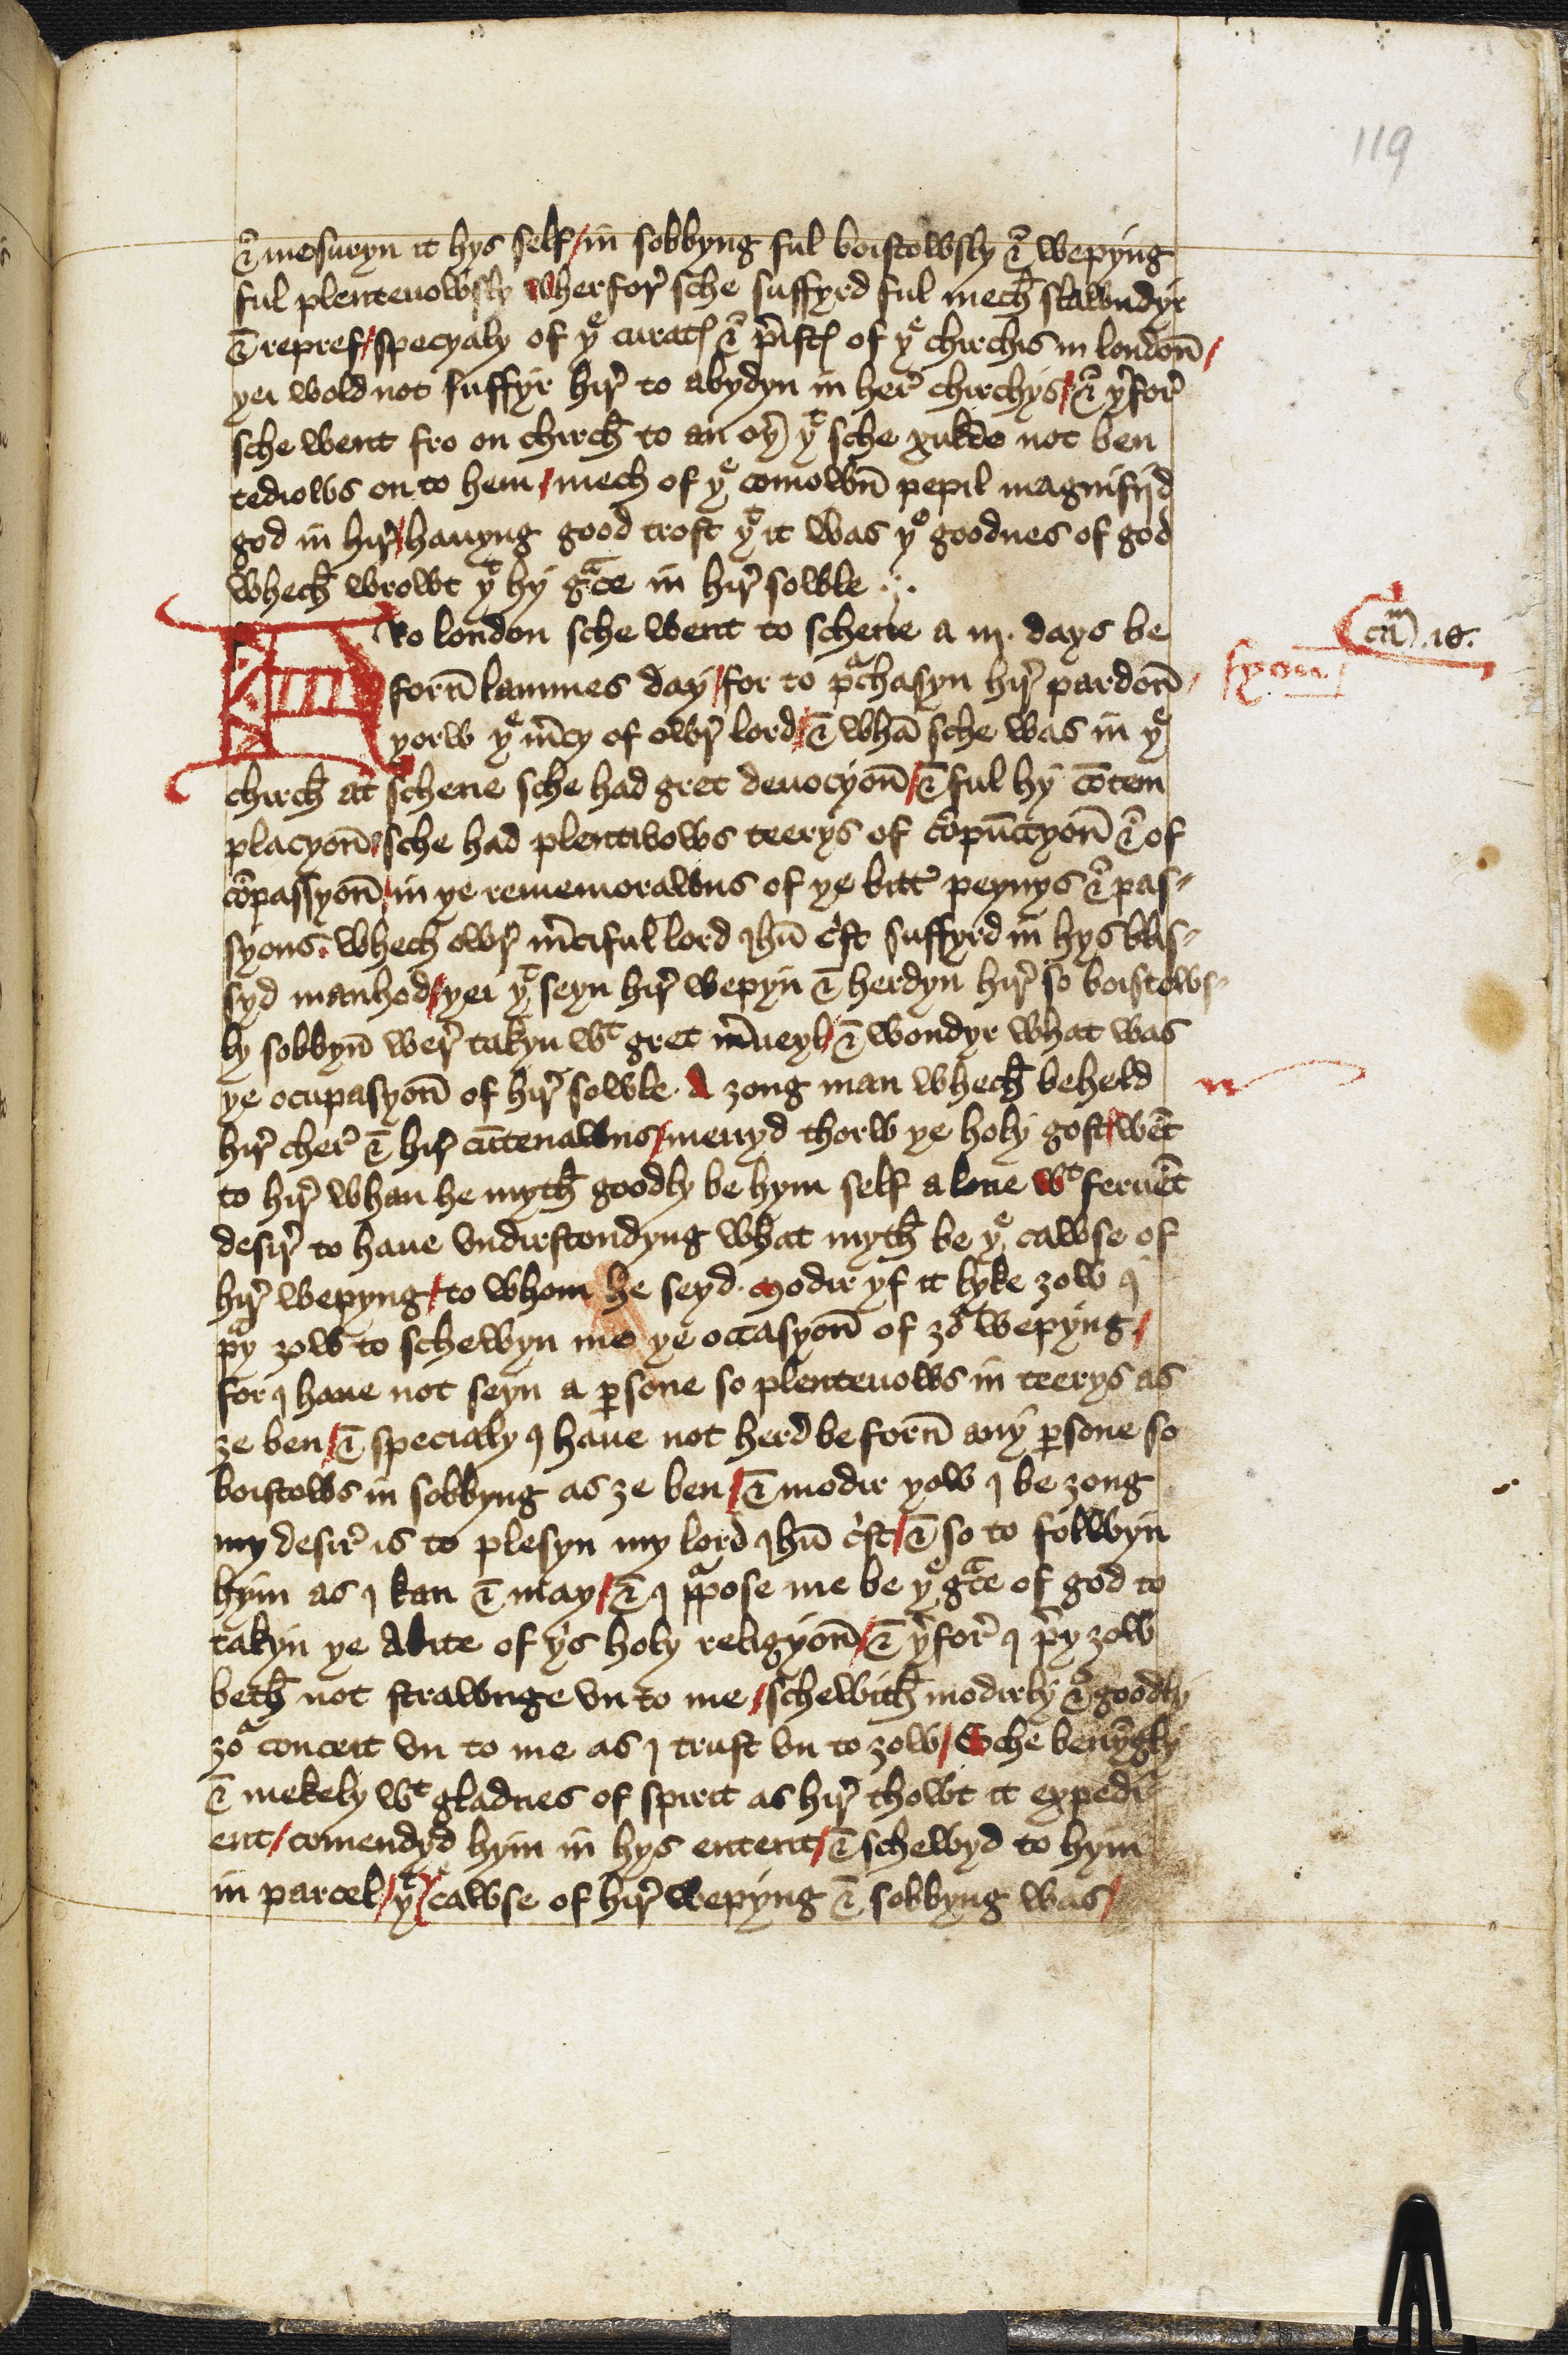 119
& mesuryn it hys self / in sobbyng ful boistowsly & wepyng
ful plenteuowsly Wherfor sche suffyrd ful mech slawndyr
& repref / specyaly of þe curatys & p̃istys of þe chirchis in londoñ /
þei wold not suffyr hir to abydyn in her chirchys / & þ̃for
sche went fro on chirch to an oþ̃ þt sche xulde not ben
tediows on to hem / mech of þe comowñ pepil magnifijd
god in hir / hauyng good trost þt it was þe goodnes of god
whech wrowt þt hy gᵃce in hir sowle .
Fro london sche went to schene a iij. days be
cam .16.
forñ lammes day / for to p̃chasyn hir pardoñ /
syon
þorw þe m̃cy of owr lord / & whã sche was in þe
chirch at schene sche had gret deuocyoñ / & ful hy cõtem
placyoñ / sche had plentivows teerys of cõpũccyoñ & of
cõpassyoñ / in þe rememorawns of þe bitt̃ peynys & pas-
syons whech owr m̃ciful lord jhũ c̃st suffyrd in hys blis-
syd manhod / þei þt seyn hir wepyn & herdyn hir so boistows-
ly sobbyñ wer takyn wt gret m̃ueyl / & wondyr what was
þe ocupasyoñ of hir sowle. A ȝong man whech beheld
n
hir cher & hir cũtenawns / meuyd thorw þe holy gost / wẽt
to hir whan he myth goodly be hym self a lone wt feruẽt
desir to haue vndirstondyng what myth be þe cawse of
hir wepyng / to whom he seyd. Modir yf it lyke ȝow j
pᵃy ȝow to schewyn me þe occasyoñ of ȝoᵃ wepyng /
for j haue not seyn a p̱sone so plenteuows in teerys as
ȝe ben / & specialy j haue not herd be forñ any p̱sone so
boistows in sobbyng as ȝe ben / & modir þow j be ȝong
my desir is to plesyn my lord jhũ c̃st / & so to folwyn
hym as j kan & may / & j p̃pose me be þe gᵃce of god to
takyn þe Abite of þis holy religyoñ / & þ̃for j p̃y ȝow
beth not strawnge vn to me / schewith modirly & goodly
ȝoᵃ conceit vn to me as j trust vn to ȝow / Sche benỹgly
& mekely wt gladnes of spirit as hir thowt it expedi
ent / comendyd hym in hys entent / & schewyd to hym
in parcel / þt þe cawse of hir wepyng & sobbyng was /